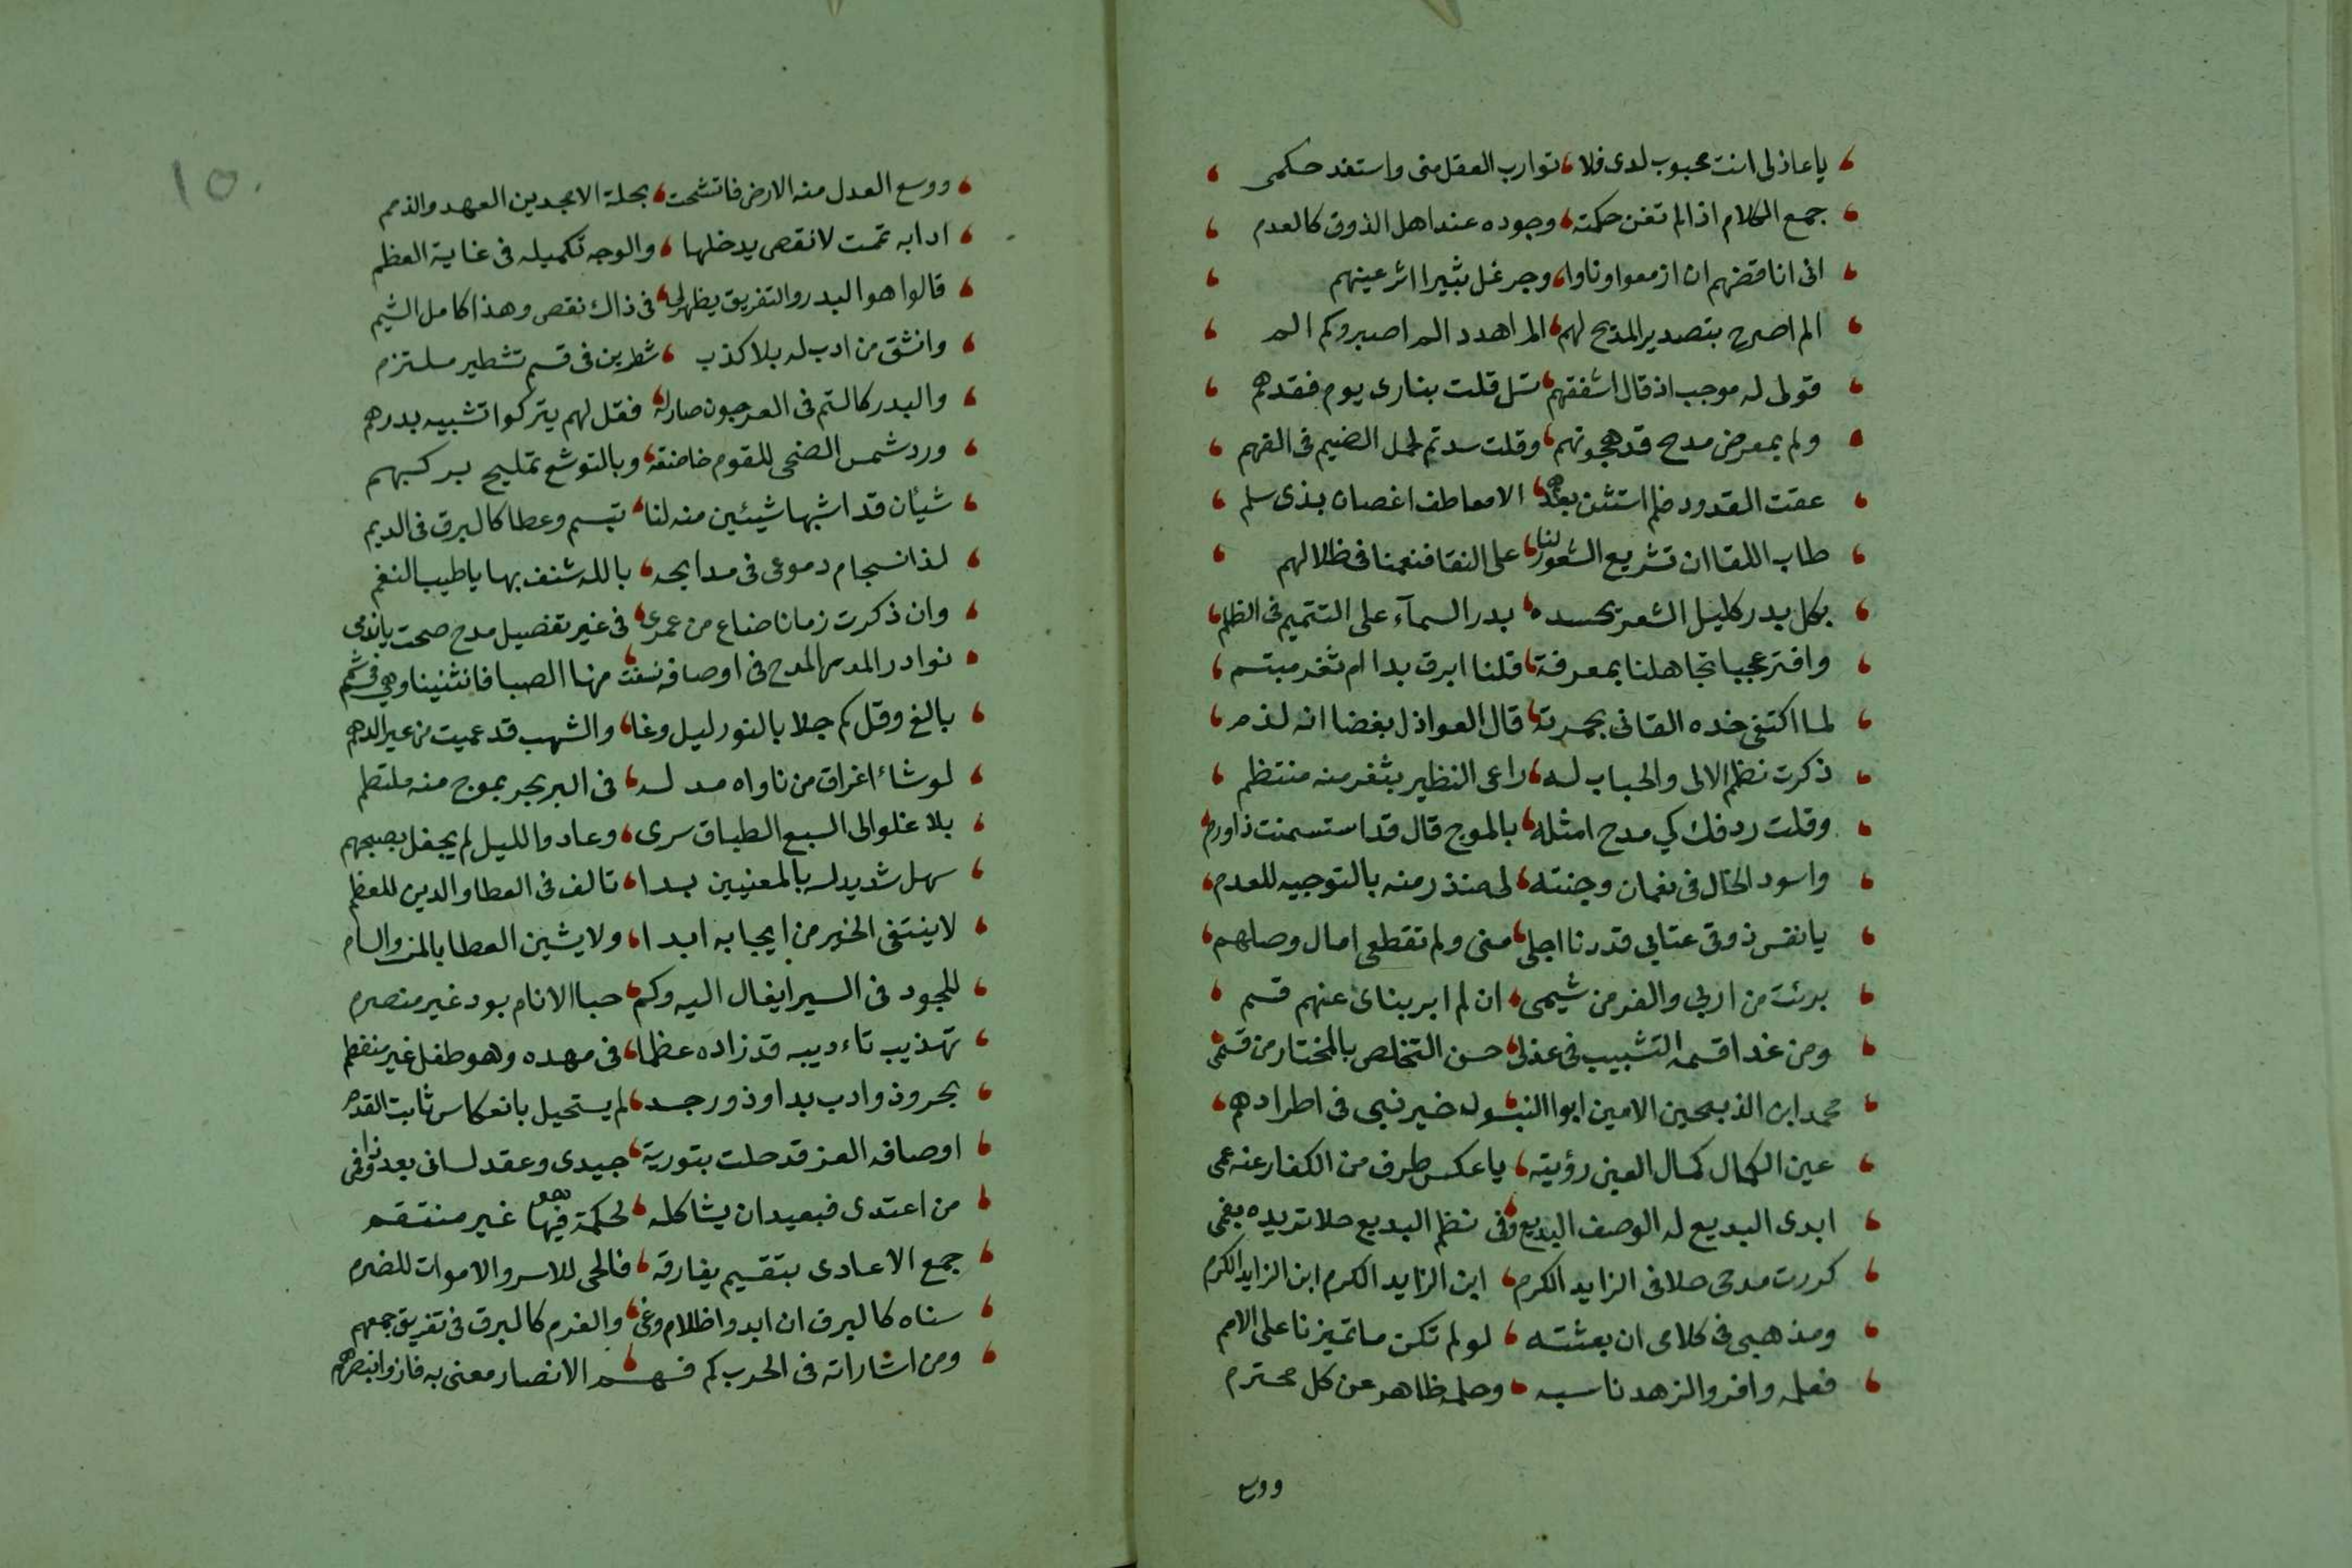 ياعاذلى انت محبوب لدى فلا توارب العقل منى واستفد حكمى
جمع الكلام اذا لم تغن حكمته وجوده عند اهل الذوق كالعدم
انى اناقضهم ان ازمعوا وناوا وجر غل بثيرا اثر عيسهم
الم اصرح بتصدير المدح لهم الم اهدد الم اصبر وكم الم
قولى له موجب اذ قال اشفقهم تسل قلت بنارى يوم فقدهم
ولم بمعرض مدح قد هجوتهم وقلت سدتم لحمل الضيم فى الفهم
عفت القدود فلم استثن بعدهم الا معاطف اغصان بذى سلم
طاب اللقا ان تشريع الشعور لنا على النقا فنعمنا فى ظلالهم
بكل بدر كليل الشعر يحسده بدر السمآء على التتميم فى الظلم
وافتر عجبا تجاهلنا بمعرفة قلنا ابرق بدا ام ثغر مبتسم
لما اكتفى خده القانى بحمرته قال العواذل بغضا انه لدم
ذكرت نظم الالى والحباب له راعى النظير بثغر منه منتظم
وقلت ردفك كي مدح امثله بالموج قال قد استسمنت ذا ورم
واسود الخال فى نعمان وجنته لى منذر منه بالتوجيه للعدم
يانفس ذوقى عتابى قد دنا اجلى منى ولم تقطعى امال وصلهم
برئت من ادبى والغر من شيمى ان لم ابر بناى عنهم قسم
ومن غدا قسمه التشبيب فى غزلى حسن التخلص بالمختار من قسمى
محمد ابن الذبيحين الامين ابوا البتول خير نبى فى اطرادهم
عين الكمال كمال العين رؤيته ياعكس طرف من الكفار عنه عمى
ابدى البديع له الوصف البديع وفى نظم البديع حلا ترديده بفمى
كررت مدحى حلا فى الزايد الكرم ابن الزايد الكرم ابن الزايد الكرم
ومذهبى فى كلامى ان بعثته لو لم تكن ما تميزنا على الامم
فعلمه وافر والزهد ناسبه وحلمه ظاهر عن كل مجترم
ووسع
١٥٠
ووسع العدل منه الارض فاتشحت بحلة الامجدين العهد والذمم
ادابه تمت لا نقص يدخلها والوجه تكميله فى غاية العظم
قالوا هو البدر والتفريق يظهر لى فى ذاك نقص وهذا كامل الشيم
وانشق من ادب له بلا كذب شطرين فى قسم تشطير ملتزم
والبدر كالتم فى العرجون صار له فقل لهم يتركوا تشبيه بدرهم
ورد شمس الضحى للقوم خاضعة وبالتوشع تمليح بركبهم
شيئان قد اشبها شيئين منه لنا تبسم وعطا كالبرق فى الديم
لذ انسجام دموعى فى مدايحه بالله شنف بها ياطيب النغم
وان ذكرت زمانا ضاع من عمرى فى غير تفصيل مدح صحت ياندمى
نوادر المدح فى اوصافه نشقت منها الصبا فانثنينا وهى فى شمم
بالغ وقل كم جلا بالنور ليل وغا والشهب قد عميت من عير الدهم
لو شاء اغراق من ناواه مد له فى البر بحر بموج منه ملتطم
بلا غلو الى السبع الطباق سرى وعاد والليل لم يجفل بصبحهم
سهل شديد له بالمعنيين بدا تالف فى العطا والدين للعظم
لاينتفى الخير من ايجابه ابدا ولا يشين العطا بالمن والسام
للجود فى السير ايغال اليه وكم حبا الانام بود غير منصرم
تهذيب تاءديبه قد زاده عظما فى مهده وهو طفل غير منفطم
بحر وذو ادب بدا وذو رحب لم يستحيل بانعكاس ثابت القدم
اوصافه الغر قد حلت بتورية جيدى وعقد لسانى بعد ذا وفى
من اعتدى فبعيد ان يشاكله لحكمة هو فيها غير منتقم
جمع الاعادى بتقسيم يفارقه فالحى للاسر والاموات للضرم
سناه كالبرق ان ابدوا ظلام وغى والغرم كالبرق فى تفريق جمعهم
ومن اشاراته فى الحرب كم فهم الانصار معنى به فازوا بنصرهم